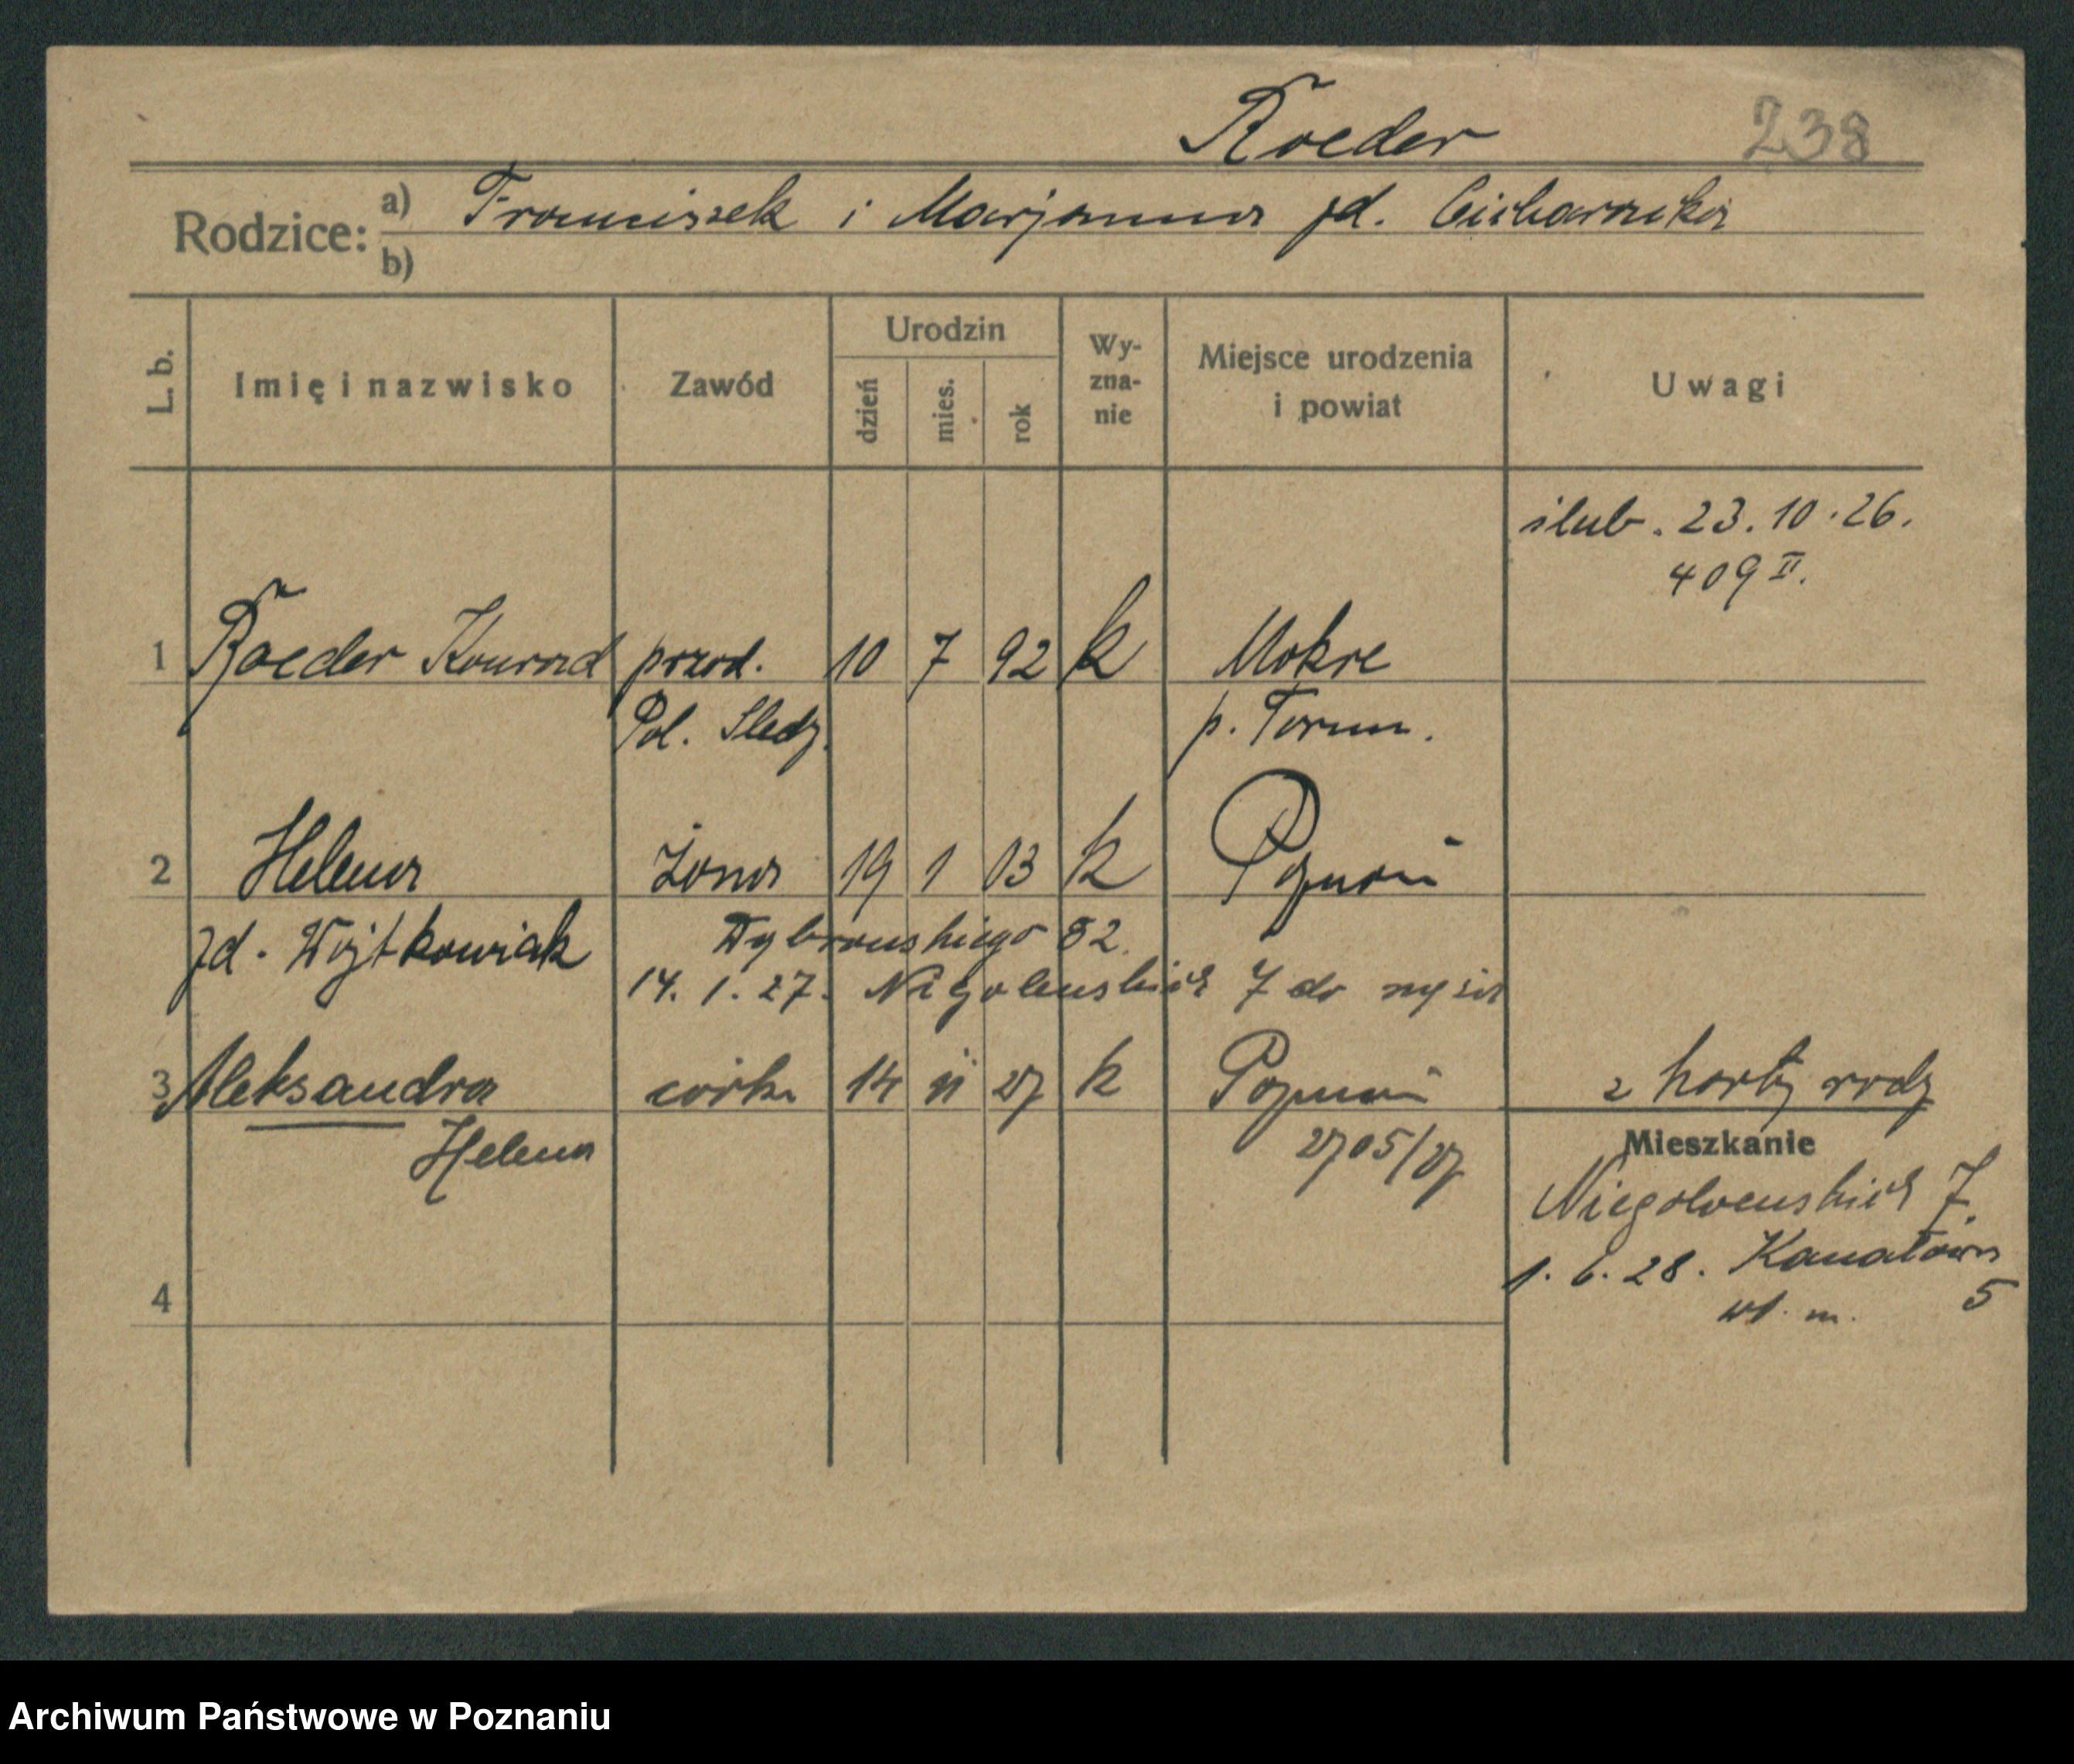 Roeder 238
Rodzice: a) Franciszek i Marjanna zd. Cicharska
b)
L. b. Imię i nazwisko Zawód Urodzin dzień mies. rok Wy-zna-nie Miejsce urodzenia i powiat Uwagi
ślub. 23.10.26.
409 II.
1 Roeder Konrad przod. 10 7 92 k Mokre
Pol. Śledz. p. Toruń.
2 Helena żona 19 1 03 k Poznań
zd. Wojtkowiak Dąbrowskiego 82.
14. 1. 27. Niegolewskich 7 do
3 Aleksandra córka 14 11 27 k Poznań z karty rodz
Helena 2705/27
Mieszkanie
Niegolewskich 7.
1. 6. 28. Kanałowa
4 wł. m. 5
Archiwum Państwowe w Poznaniu